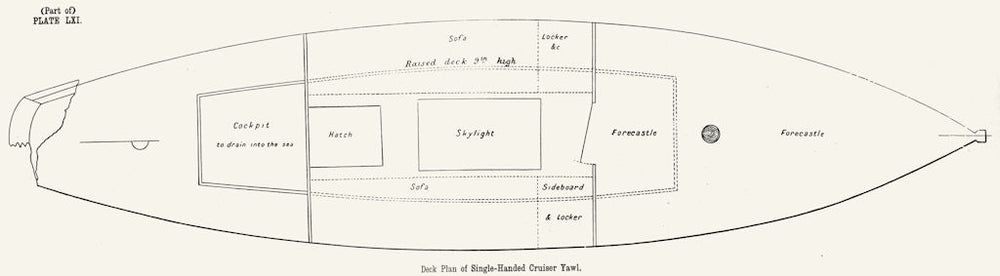 (Part of)
PLATE LXI.
Sofa
Locker
&c
Raised deck 9in high
Cockpit
to drain into the sea
Hatch
Skylight
Forecastle
Forecastle
Sofa
Sideboard
& Locker
Deck Plan of Single-Handed Cruiser Yawl.